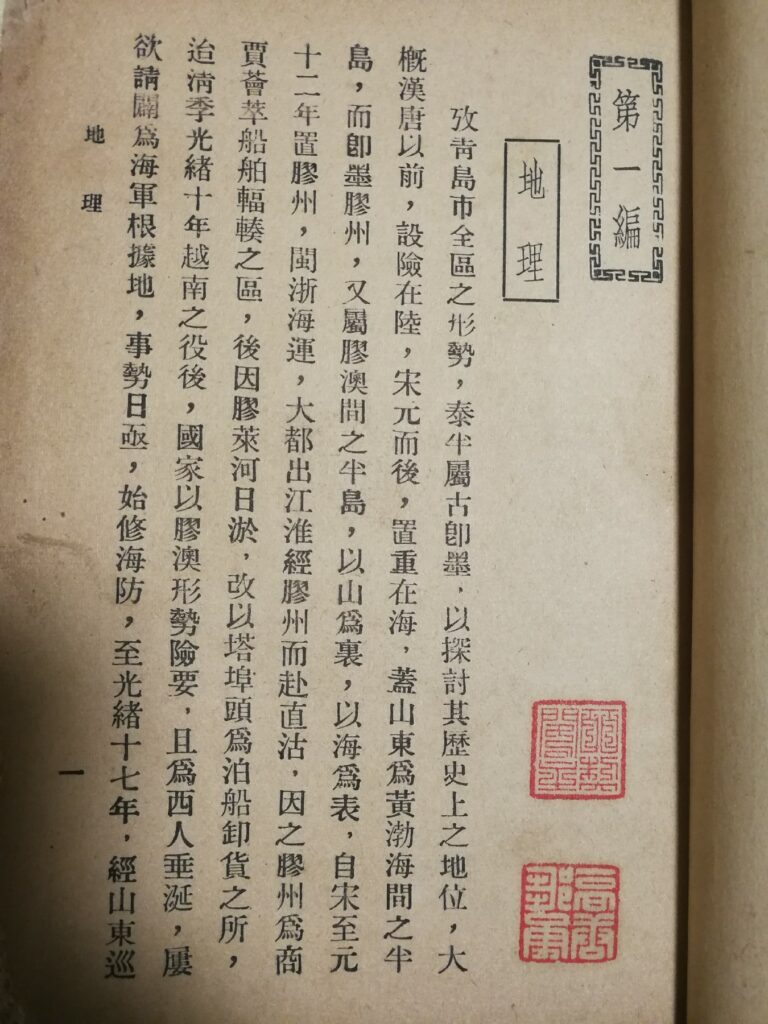 第一編
地理
攷靑島市全區之形勢，泰半屬古卽墨，以探討其歷史上之地位，大
概漢唐以前，設險在陸，宋元而後，置重在海，蓋山東爲黃渤海間之半
島，而卽墨膠州，又屬膠澳間之半島，以山爲裏，以海爲表，自宋至元
十二年置膠州，閩浙海運，大都出江淮經膠州而赴直沽，因之膠州爲商
賈薈萃船舶輻輳之區，後因膠萊河日淤，改以塔埠頭爲泊船卸貨之所，
迨淸季光緒十年越南之役後，國家以膠澳形勢險要，且爲西人垂涎，屢
欲請闢爲海軍根據地，事勢日亟，始修海防，至光緒十七年，經山東巡
地理
一